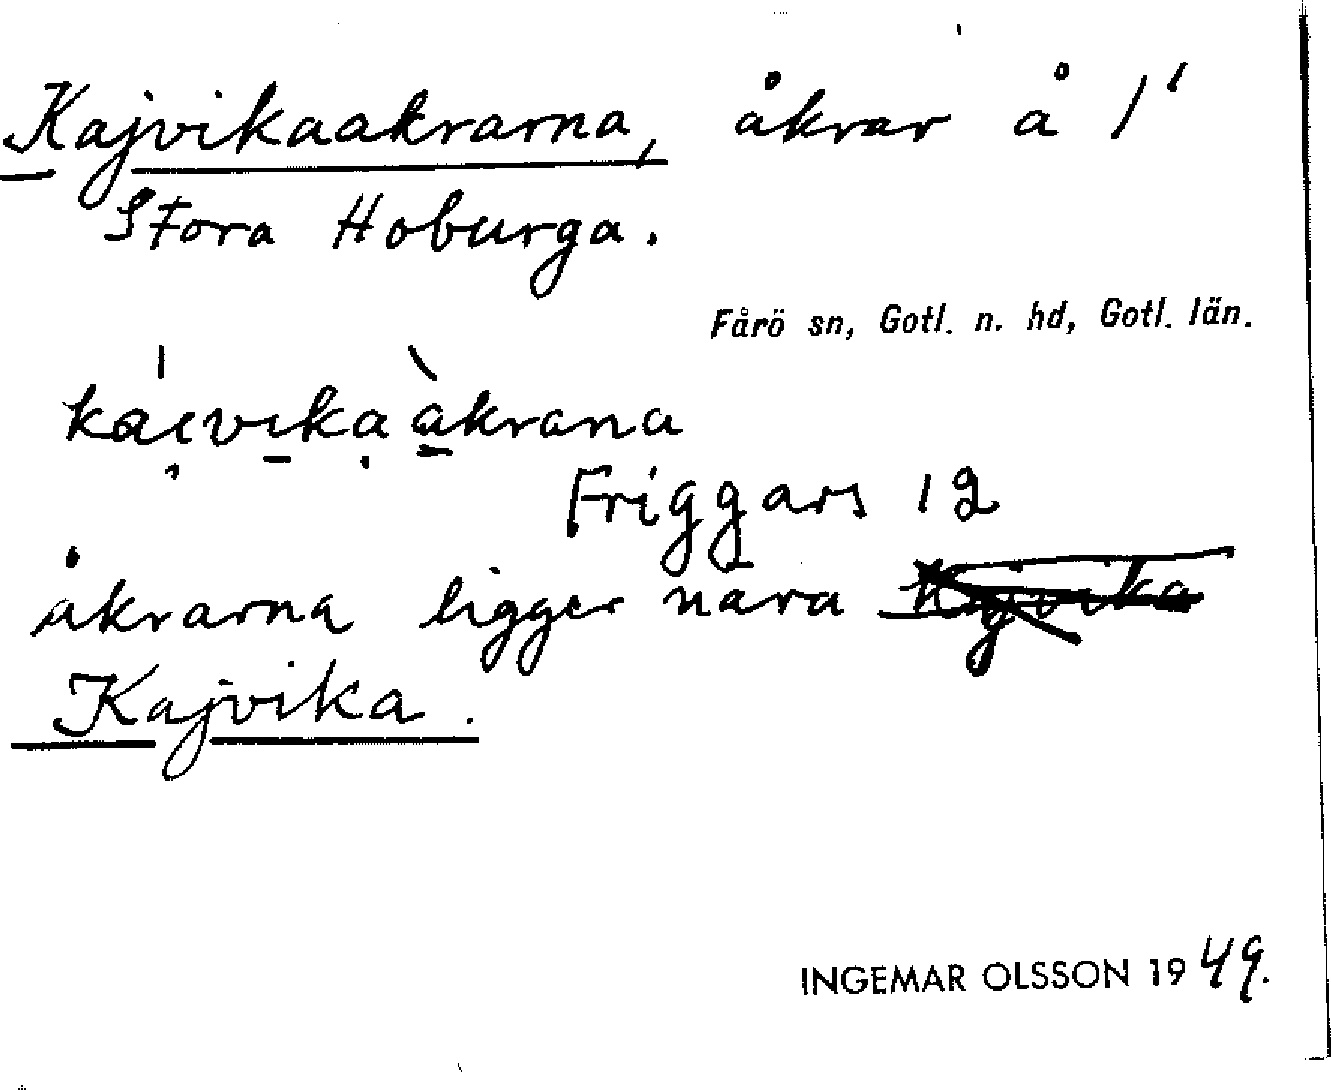 Kajvikaakrarna, åkrar å 1'
Stora Hoburga.
Fårö sn, Gotl. n. hd, Gotl. län.
kaivika akrana
Friggars 12
åkrarna ligger nära
Kajvika.
INGEMAR OLSSON 1949.